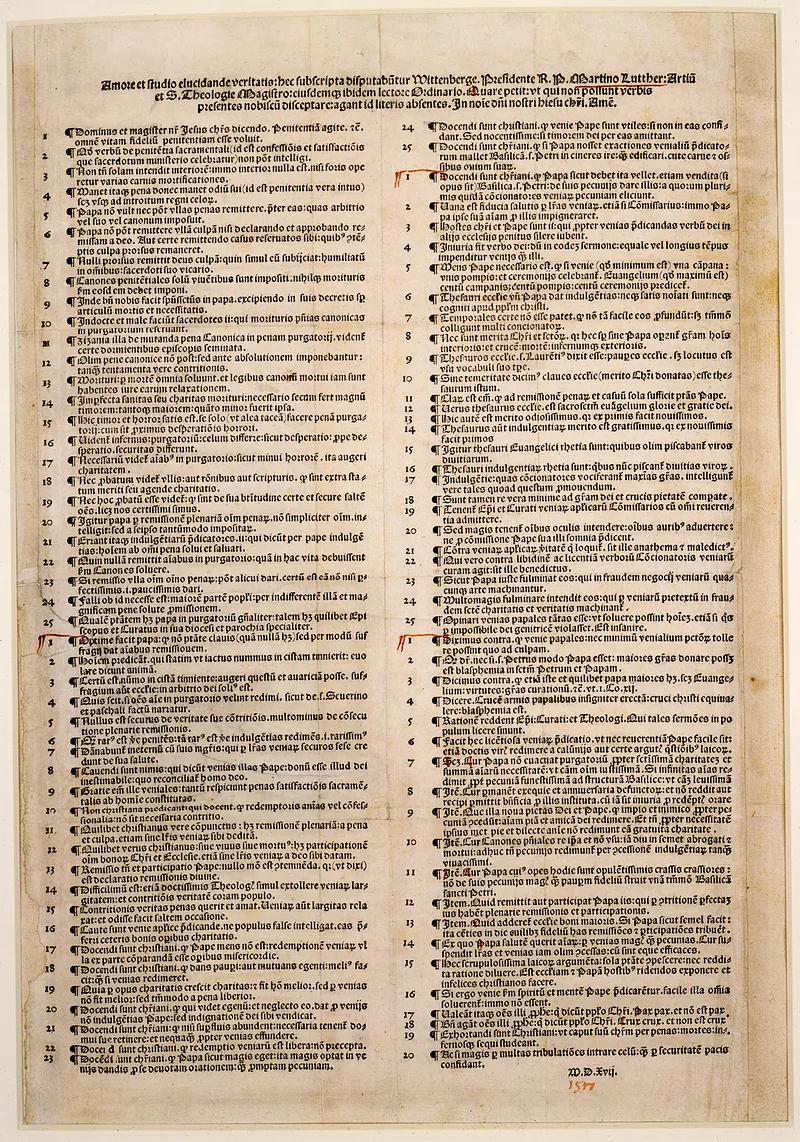 Amore et studio elucidande veritatis: hec subscripta disputabūtur Wittenberge. Presidente R. P. Martino Lutther: Artiū
et S. Theologie Magistro: eiusdemq̢ ibidem lectore Ordinario. Quare petit: vt qui non possunt verbis
presentes nobiscū disceptare: agant id literis absentes. In noīe dn̄i nostri hiesu chr̄i. Amē.
1 ¶Dominus et magister nr̄ Jesus chr̄s dicendo. Penitentiā agite. ꝛc̄.
omnē vitam fideliū penitentiam esse voluit.
2 ¶Qd̄ verbū de penitētia sacramentali (id est confessiōis et satisfactiōis
que sacerdotum ministerio celebratur) non pōt intelligi.
3 ¶Non tn̄ solam intendit interiorē: immo interior nulla est. nisi foris ope
retur varias carnis mortificationes.
4 ¶Manet itaq̢ pena donec manet odiū sui (id est penitentia vera intus)
scꝫ vsq̢ ad introitum regni celoꝝ.
5 ¶Papa nō vult nec pōt vllas penas remittere. p̄ter eas: quas arbitrio
vel suo vel canonum imposuit.
6 ¶Papa nō pōt remittere vllā culpā nisi declarando et approbando re⸗
missam a deo. Aut certe remittendo casus reservatos sibi: quibꝰ ꝯtē⸗
ptis culpa prorsus remaneret.
7 ¶Nulli prorsus remittit deus culpā: quin simul eū subijciat: humiliatū
in omībus: sacerdoti suo vicario.
8 ¶Canones penitētiales solū viuētibus sunt impositi. nihilq̢ morituris
ꝑm eosd̄em debet imponi.
9 ¶Inde bn̄ nobis facit spūssctūs in papa. excipiendo in suis decretis sꝑ
articulū mortis et necessitatis.
10 ¶Indocte et male faciūt sacerdotes ii: qui morituris pn̄ias canonicas
in purgatorium reseruant.
11 ¶Zizania illa de mutanda pena Canonica in penam purgatorij. vident̄
certe dormientibus episcopis seminata.
12 ¶Olim pene canonice nō post: sed ante absolutionem imponebantur:
tanq̄ tentamenta vere contritionis.
13 ¶Morituri: p mortē omnia soluunt. et legibus canonū mortui iam sunt
habentes iure earum relaxationem.
14 ¶Imperfecta sanitas seu charitas morituri: necessario secum fert magnū
timorem: tantoq̢ maiorem: quāto minor fuerit ipsa.
15 ¶Hic timor et horror: satis est. se solo (vt alea taceā) facere penā purga⸗
torij: cum sit ꝓximus desperatiōis horrori.
16 ¶Vident̄ infernus: purgatoriū: celum differre: sicut desperatio: ꝓpe de⸗
speratio. securitas differunt.
17 ¶Necessariū videt̄ aīabꝰ in purgatorio: sicut minui horrorē. ita augeri
charitatem.
18 ¶Nec ꝓbatum videt̄ vllis: aut rōnibus aut scripturis. ꝙ sint extra sta⸗
tum meriti seu agende charitatis.
19 ¶Nec hoc ꝓbatū esse videt̄: ꝙ sint de sua btītudine certe et secure saltē
oēs. licꝫ nos certissimi simus.
20 ¶Igitur papa ꝑ remissionē plenariā oīm penaꝝ. nō simpliciter oīm. in⸗
telligit: sed a seipso tantūmodo impositaꝝ.
21 ¶Errant itaq̢ indulgētiarū p̄dicatores. ii: qui dicūt per pape indulgē⸗
tias: hoīem ab omni pena solui et saluari.
22 ¶Quin nullā remittit aīabus in purgatorio: quā in hac vita debuissent
ꝑm Canones soluere.
23 ¶Si remissio vlla oīm oīno penaꝝ: pōt alicui dari. certū est eā nō nisi ꝑ⸗
fectissimis. i. paucissimis dari.
24 ¶Falli ob id necesse est: maiorē partē popl̄i: per indifferentē illā et ma⸗
gnificam pene solute ꝓmissionem.
25 ¶Qualē prātem hꝫ papa in purgatoriū gn̄aliter: talem hꝫ quilibet Epi⸗
scopus et Curatus in sua diocesi et parochia specialiter.
1 ¶Optime facit papa: ꝙ nō prāte clauis (quā nullā hꝫ) sed per modū suf
fragij dat aīabus remissionem.
2 ¶Hoīem predicāt. qui statim vt iactus nummus in cistam tinnierit: euo
lare dicunt animā.
3 ¶Certū est. nūmo in cistā tinniente: augeri questū et auariciā posse. suf⸗
fragium aūt eccl̄ie: in arbitrio dei soliꝰ est.
4 ¶Quis scit. si oēs aīe in purgatorio velint redimi. sicut de. s. Seuerino
et paschali factū narratur.
5 ¶Nullus est securus de veritate sue cōtritiōis. multominus de cōsecu
tione plenarie remissionis.
6 ¶Qm̄ rarꝰ est ꝟe penitēs: tā rarꝰ est ꝟe indulgētias redimēs. i. rarissimꝰ
7 ¶Dānabunt̄ ineternū cū suis mgr̄is: qui ꝑ lr̄as veniaꝝ securos sese cre
dunt de sua salute.
8 ¶Cauendi sunt nimis: qui dicūt venias illas Pape: donū esse illud dei
inestimabile: quo reconciliat̄ homo deo.
9 ¶Gratie em̄ ille veniales: tantū respiciunt penas satisfactiōis sacramē⸗
talis ab homine constitutas.
10 ¶Non christiana predicant. qui docent. ꝙ redemptoris animas vel cōfess⸗
sionalia: nō sit necessaria contritio.
11 ¶Quilibet christianus vere cōpunctus: hꝫ remissionē plenariā: a pena
et culpa. etiam sine lr̄is veniaꝝ sibi debitā.
12 ¶Quilibet verus christianus: siue viuus siue mortuꝰ: hꝫ participationē
oīm bonoꝝ Chr̄i et Ecclesie. etiā sine lr̄is veniaꝝ a deo sibi datam.
13 ¶Remissio tn̄ et participatio Pape: nullo mō est ꝯtemnēda. qꝛ (vt dixi)
est declaratio remissionis diuine.
14 ¶Difficilimū est: etiā doctissimis Theologꝭ simul extollere veniaꝝ lar⸗
gitatem: et contritiōis veritatē coram populo.
15 ¶Contritionis veritas penas querit et amat. Ueniaꝝ aūt largitas rela
xat: et odisse facit saltem occasione.
16 ¶Caute sunt venie apl̄ice p̄dicande. ne populus false intelligat. eas p̄⸗
ferri ceteris bonis opibus charitatis.
17 ¶Docendi sunt christiani. ꝙ Pape mens nō est: redemptionē veniaꝝ vl
la ex parte cōparandā esse opibus misericordie.
18 ¶Docendi sunt christiani. ꝙ dans paupi: aut mutuans egenti: meliꝰ fa⸗
cit: ꝙ si venias redimeret.
19 ¶Quia ꝑ opus charitatis crescit charitas: ⁊ fit hō melior: sed ꝑ venias
nō fit melior: sed tm̄modo a pena liberior.
20 ¶Docendi sunt christiani. ꝙ qui videt egenū: et neglecto eo. dat ꝓ venijs
nō indulgētias Pape: sed indignationē dei sibi vendicat.
21 ¶Docendi sunt chr̄iani: ꝙ nisi suꝑfluis abundent: necessaria tenent̄ do⸗
mui sue retinere: et nequaq̄ ꝓpter venias effundere.
22 ¶Docendi sunt christiani. ꝙ redemptio veniarū est libera: nō precepta.
23 ¶Docendi sunt chr̄iani. ꝙ Papa sicut magis eget: ita magis optat in ve
nijs dandis ꝓ se deuotam orationem: ꝙ̄ promptam pecuniam.
24 ¶Docendi sunt christiani. ꝙ venie Pape sunt vtiles: si non in eas confi⸗
dant. Sed nocentissime: si timorem dei per eas amittant.
25 ¶Docendi sunt chr̄iani. ꝙ si Papa nosset exactiones venialiū p̄dicato⸗
rum mallet Basilicā. s. Petri in cineres ire: ꝙ̄ edificari. cute carne ⁊ os⸗
sibus ouium suaꝝ.
1 ¶Docendi sunt chr̄iani. ꝙ Papa sicut debet ita vellet. etiam vendita (si
opus sit) Basilica. s. Petri: de suis pecunijs dare illis: a quoꝝ pluri⸗
mis quidā cōcionatores veniaꝝ pecuniam eliciunt.
2 ¶Uana est fiducia salutis ꝑ lr̄as veniaꝝ. etiā si Commissarius: immo Pa⸗
pa ipse suā aīam ꝓ illis impigneraret.
3 ¶Hostes chr̄i et Pape sunt ii: qui ꝓpter venias p̄dicandas verbū dei in
alijs ecclesijs penitus silere iubent.
4 ¶Iniuria fit verbo dei: dū in eodeꝫ sermone: equale vel longius tēpus
impenditur venijs ꝙ̄ illi.
5 ¶Mens Pape necessario est. ꝙ si venie (qd̄ minimum est) vna cāpana:
vnis pompis: et ceremonijs celebrant̄. Euangelium (qd̄ maximū est)
centū campanis: centū pompis: centū ceremonijs predicet̄.
6 ¶Thesauri eccl̄ie vn̄ Papa dat indulgētias: neq̢ satis noīati sunt: neq̢
cogniti apud ppl̄m christi.
7 ¶Temporales certe nō esse patet. ꝙ nō tā facile eos ꝓfundūt: sꝫ tm̄mō
colligunt multi concionatoꝝ.
8 ¶Nec sunt merita Chr̄i et sctōꝝ. qꝛ hec sꝑ sine Papa operant̄ grām hoīs
interioris: et crucē: mortē: infernumq̢ exterioris.
9 ¶Thesauros eccl̄ie. s. Laurētiꝰ dixit esse: paupes eccl̄ie. sꝫ locutus est
vsu vocabuli suo tpe.
10 ¶Sine temeritate dicimꝰ claues eccl̄ie (merito Chr̄i donatas) esse the⸗
saurum istum.
11 ¶Claꝝ est em̄. ꝙ ad remissionē penaꝝ et casuū sola sufficit ptās Pape.
12 ¶Uerus thesaurus eccl̄ie. est sacrosctm̄ euāgelium glorie et gratie dei.
13 ¶Hic aūt est merito odiosissimus. qꝛ ex primis facit nouissimos.
14 ¶Thesaurus aūt indulgentiaꝝ merito est gratissimus. qꝛ ex nouissimis
facit primos
15 ¶Igitur thesauri Euangelici rhetia sunt: quibus olim piscabant̄ viros
diuitiarum.
16 ¶Thesauri indulgentiaꝝ rhetia sunt: qbus nūc piscant̄ diuitias viroꝝ.
17 ¶Indulgētie: quas cōcionatores vociferant̄ maxīas grās. intelligunt̄
vere tales quoad questum ꝓmouendum.
18 ¶Sunt tamen re vera minime ad grām dei et crucis pietatē compate.
19 ¶Tenent̄ Epī et Curati veniaꝝ apl̄icarū Cōmissarios cū omni reueren⸗
tia admittere.
20 ¶Sed magis tenent̄ oībus oculis intendere: oībus auribꝰ aduertere:
ne ꝓ cōmissione Pape sua illi somnia p̄dicent.
21 ¶Cōtra veniaꝝ apl̄icaꝝ ꝟitatē ꝗ loquit̄. sit ille anathema ⁊ maledictꝰ.
22 ¶Qui vero contra libidinē ac licentiā verborū Cōcionatoris veniarū
curam agit: sit ille benedictus.
23 ¶Sicut Papa iuste fulminat eos: qui in fraudem negocij veniarū qua⸗
cunq̢ arte machinantur.
24 ¶Multomagis fulminare intendit eos: qui ꝑ veniarū pretextū in frau⸗
dem sctē charitatis et veritatis machinant̄.
25 ¶Opinari venias papales tātas esse: vt soluere possint hoīeꝫ. etiā si ꝗs
ꝑ impossibile dei genitricē violasset. Est insanire.
1 ¶Diximus contra. ꝙ venie papales: nec minimū venialium pctōꝝ tolle
re possint quo ad culpam.
2 ¶Qd̄ dr̄. nec si. s. Petrus modo Papa esset: maiores grās donare posset
est blasphemia in sctm̄ Petrum et Papam.
3 ¶Dicimus contra. ꝙ etiā iste et quilibet papa maiores hꝫ. scꝫ Euange⸗
lium: virtutes: grās curationū. ꝛc̄. vt. i. Co. xij.
4 ¶Dicere. Crucē armis papalibus insigniter erectā: cruci christi equiua⸗
lere: blasphemia est.
5 ¶Rationē reddent Epī: Curati: et Theologi. Qui tales sermōes in po
pulum licere sinunt.
6 ¶Facit hec licētiosa veniaꝝ p̄dicatio. vt nec reuerentiā Pape facile sit:
etiā doctis viris redimere a calūnijs aut certe argutꝭ q̄stiōibꝰ laicoꝝ.
7 ¶Scꝫ. Cur Papa nō euacuat purgatoriū ꝓpter sctissimā charitatē et
summā aīarū necessitatē: vt cām oīm iustissimā. Si infinitas aīas re⸗
dimit ꝓpt̄ pecuniā funestissimā ad structurā Basilice: vt cāꝫ leuissimā
8 ¶Itē. Cur ꝑmanēt exequie et anniuersaria defunctoꝝ: et nō reddit aut
recipi permittit bn̄ficia ꝓ illis instituta. cū iā sit iniuria ꝓ redēptꝭ orare
9 ¶Itē. Que illa noua pietas Dei et Pape. ꝙ impio et inimico ꝓpter pe⸗
cuniā ꝯcedūt: aīam piā et amicā dei redimere. Et tn̄ ꝓpter necessitatē
ipsius met pie et dilecte aīe nō redimunt eā gratuita charitate.
10 ¶Itē. Cur Canones pn̄iales re ipa et nō vsu: iā diu in semet abrogati ⁊
mortui: adhuc tn̄ pecunijs redimunt̄ ꝑ ꝯcessionē indulgētiaꝝ tanq̄
viuacissimi.
11 ¶Itē. Cur Papa cuiꝰ opes hodie sunt opulētissimis crassis crassiores:
nō de suis pecunijs magꝭ ꝙ̄ paupm̄ fideliū struit vnā tm̄mō Basilicā
sancti Petri.
12 ¶Item. Quid remittit aut participat Papa iis: qui ꝑ ꝯtritionē ꝑfectā
ius habēt plenarie remissionis et participationis.
13 ¶Item. Quid adderet̄ eccl̄ie boni maioris. Si Papa sicut semel facit:
ita cēties in die cuilibꝫ fideliū has remissiōes ⁊ ꝑticipatiōes tribuēt.
14 ¶Ex quo Papa salutē querit aīaꝝ: ꝑ venias magꝭ ꝙ̄ pecunias. Cur su⸗
spendit lr̄as et venias iam olim ꝯcessas: cū sint eque efficaces.
15 ¶Hec scrupulosissima laicoꝝ argumēta: sola ptāte ꝯpescere: nec reddi⸗
ta ratione diluere. Est eccl̄iam ⁊ Papā hostibꝰ ridendos exponere et
infelices christianos facere.
16 ¶Si ergo venie ꝑm spiritū et mentē Pape p̄dicarēt̄ur. facile illa omīa
soluerent̄: immo nō essent.
17 ¶Ualeāt itaq̢ oēs illi ꝓphē: ꝗ dicūt ppl̄o Chr̄i. Pax pax. et nō est pax.
18 ¶Bn̄ agāt oēs illi ꝓphē: ꝗ dicūt ppl̄o Chr̄i. Crux crux. et non est crux
19 ¶Exhortandi sunt Christiani: vt caput suū chr̄m per penas: mortes: in⸗
fernosq̢ sequi studeant.
20 ¶Ac sic magis ꝑ multas tribulatiōes intrare celū: ꝙ̄ ꝑ securitatē pacis
confidant.
M.D.Xvij.
1517